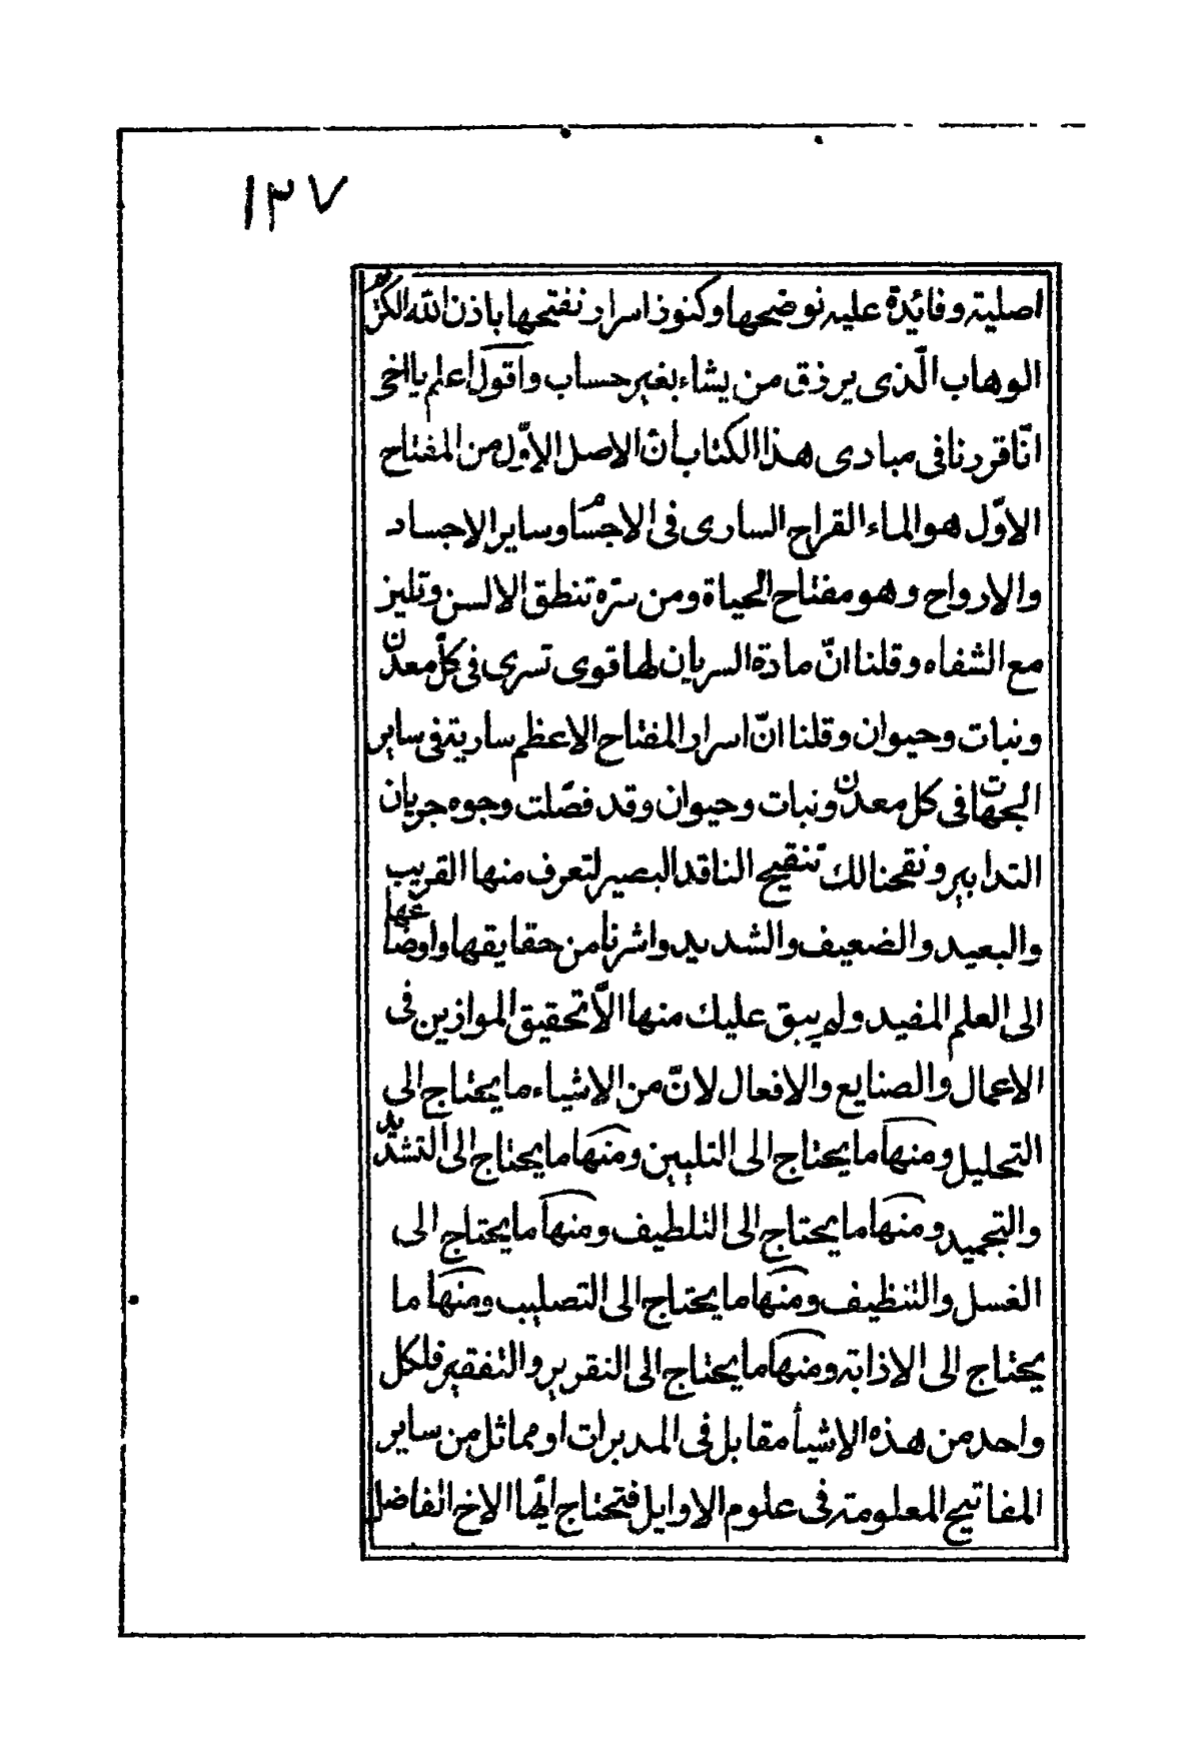 ١٣٧
اصلية وفائدة علية نوضحها وكنوز اسرار نفتحها باذن الله الكريم
الوهاب الّذى يرزق من يشاء بغير حساب واقول اعلم يا اخى
انّا قررنا فى مبادى هذا الكتاب انّ الاصل الاوّل من المفتاح
الاوّل هو الماء القراح السارى فى الاجسام وساير الاجساد
والارواح وهو مفتاح الحياة ومن سرّه تنطق الالسن وتلين
مع الشفاه وقلنا انّ مادة السريان لها قوى تسرى فى كلّ معدن
ونبات وحيوان وقلنا انّ اسرار المفتاح الاعظم سارية فى ساير
الجهات فى كل معدن ونبات وحيوان وقد فصّلت وجوه جريان
التدابير ونقحنا لك تنقيح الناقد البصير لتعرف منها القريب
والبعيد والضعيف والشديد واشرنا من حقايقها واوضاعها
الى العلم المفيد ولم يبق عليك منها الّا تحقيق الموازين فى
الاعمال والصنايع والافعال لانّ من الاشياء ما يحتاج الى
التحليل ومنها ما يحتاج الى التليين ومنها ما يحتاج الى التشديد
والتجميد ومنها ما يحتاج الى التلطيف ومنها ما يحتاج الى
الغسل والتنظيف ومنها ما يحتاج الى التصليب ومنها ما
يحتاج الى الاذابة ومنها ما يحتاج الى التقرير والتفقير فلكل
واحد من هذه الاشيأ مقابل فى المدبرات او مماثل من ساير
المفاتيح المعلومة فى علوم الاوايل فتحتاج ايّها الاخ الفاضل